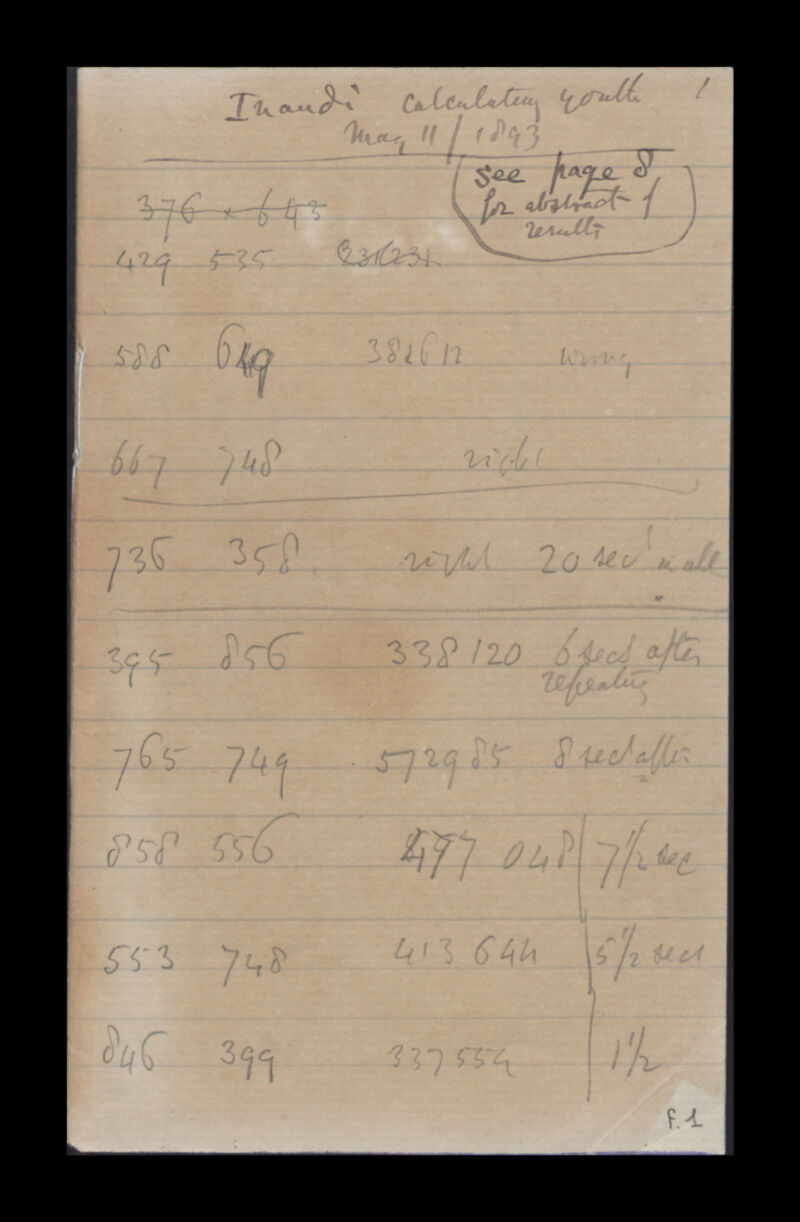 Inaudi calculating youth 1
May 11 / 1893
see page 8
for abstract of
results
376 × 643
429 535
588 649 381612 wrong
667 748 right
736 358 right 20 sec in all
395 856 338120 6 secs after
repeating
765 749 572985 8 sec after
858 556 477 048 7 1/2 sec
553 748 413 644 5 1/2 secs
846 399 337554 1 1/2
F.1